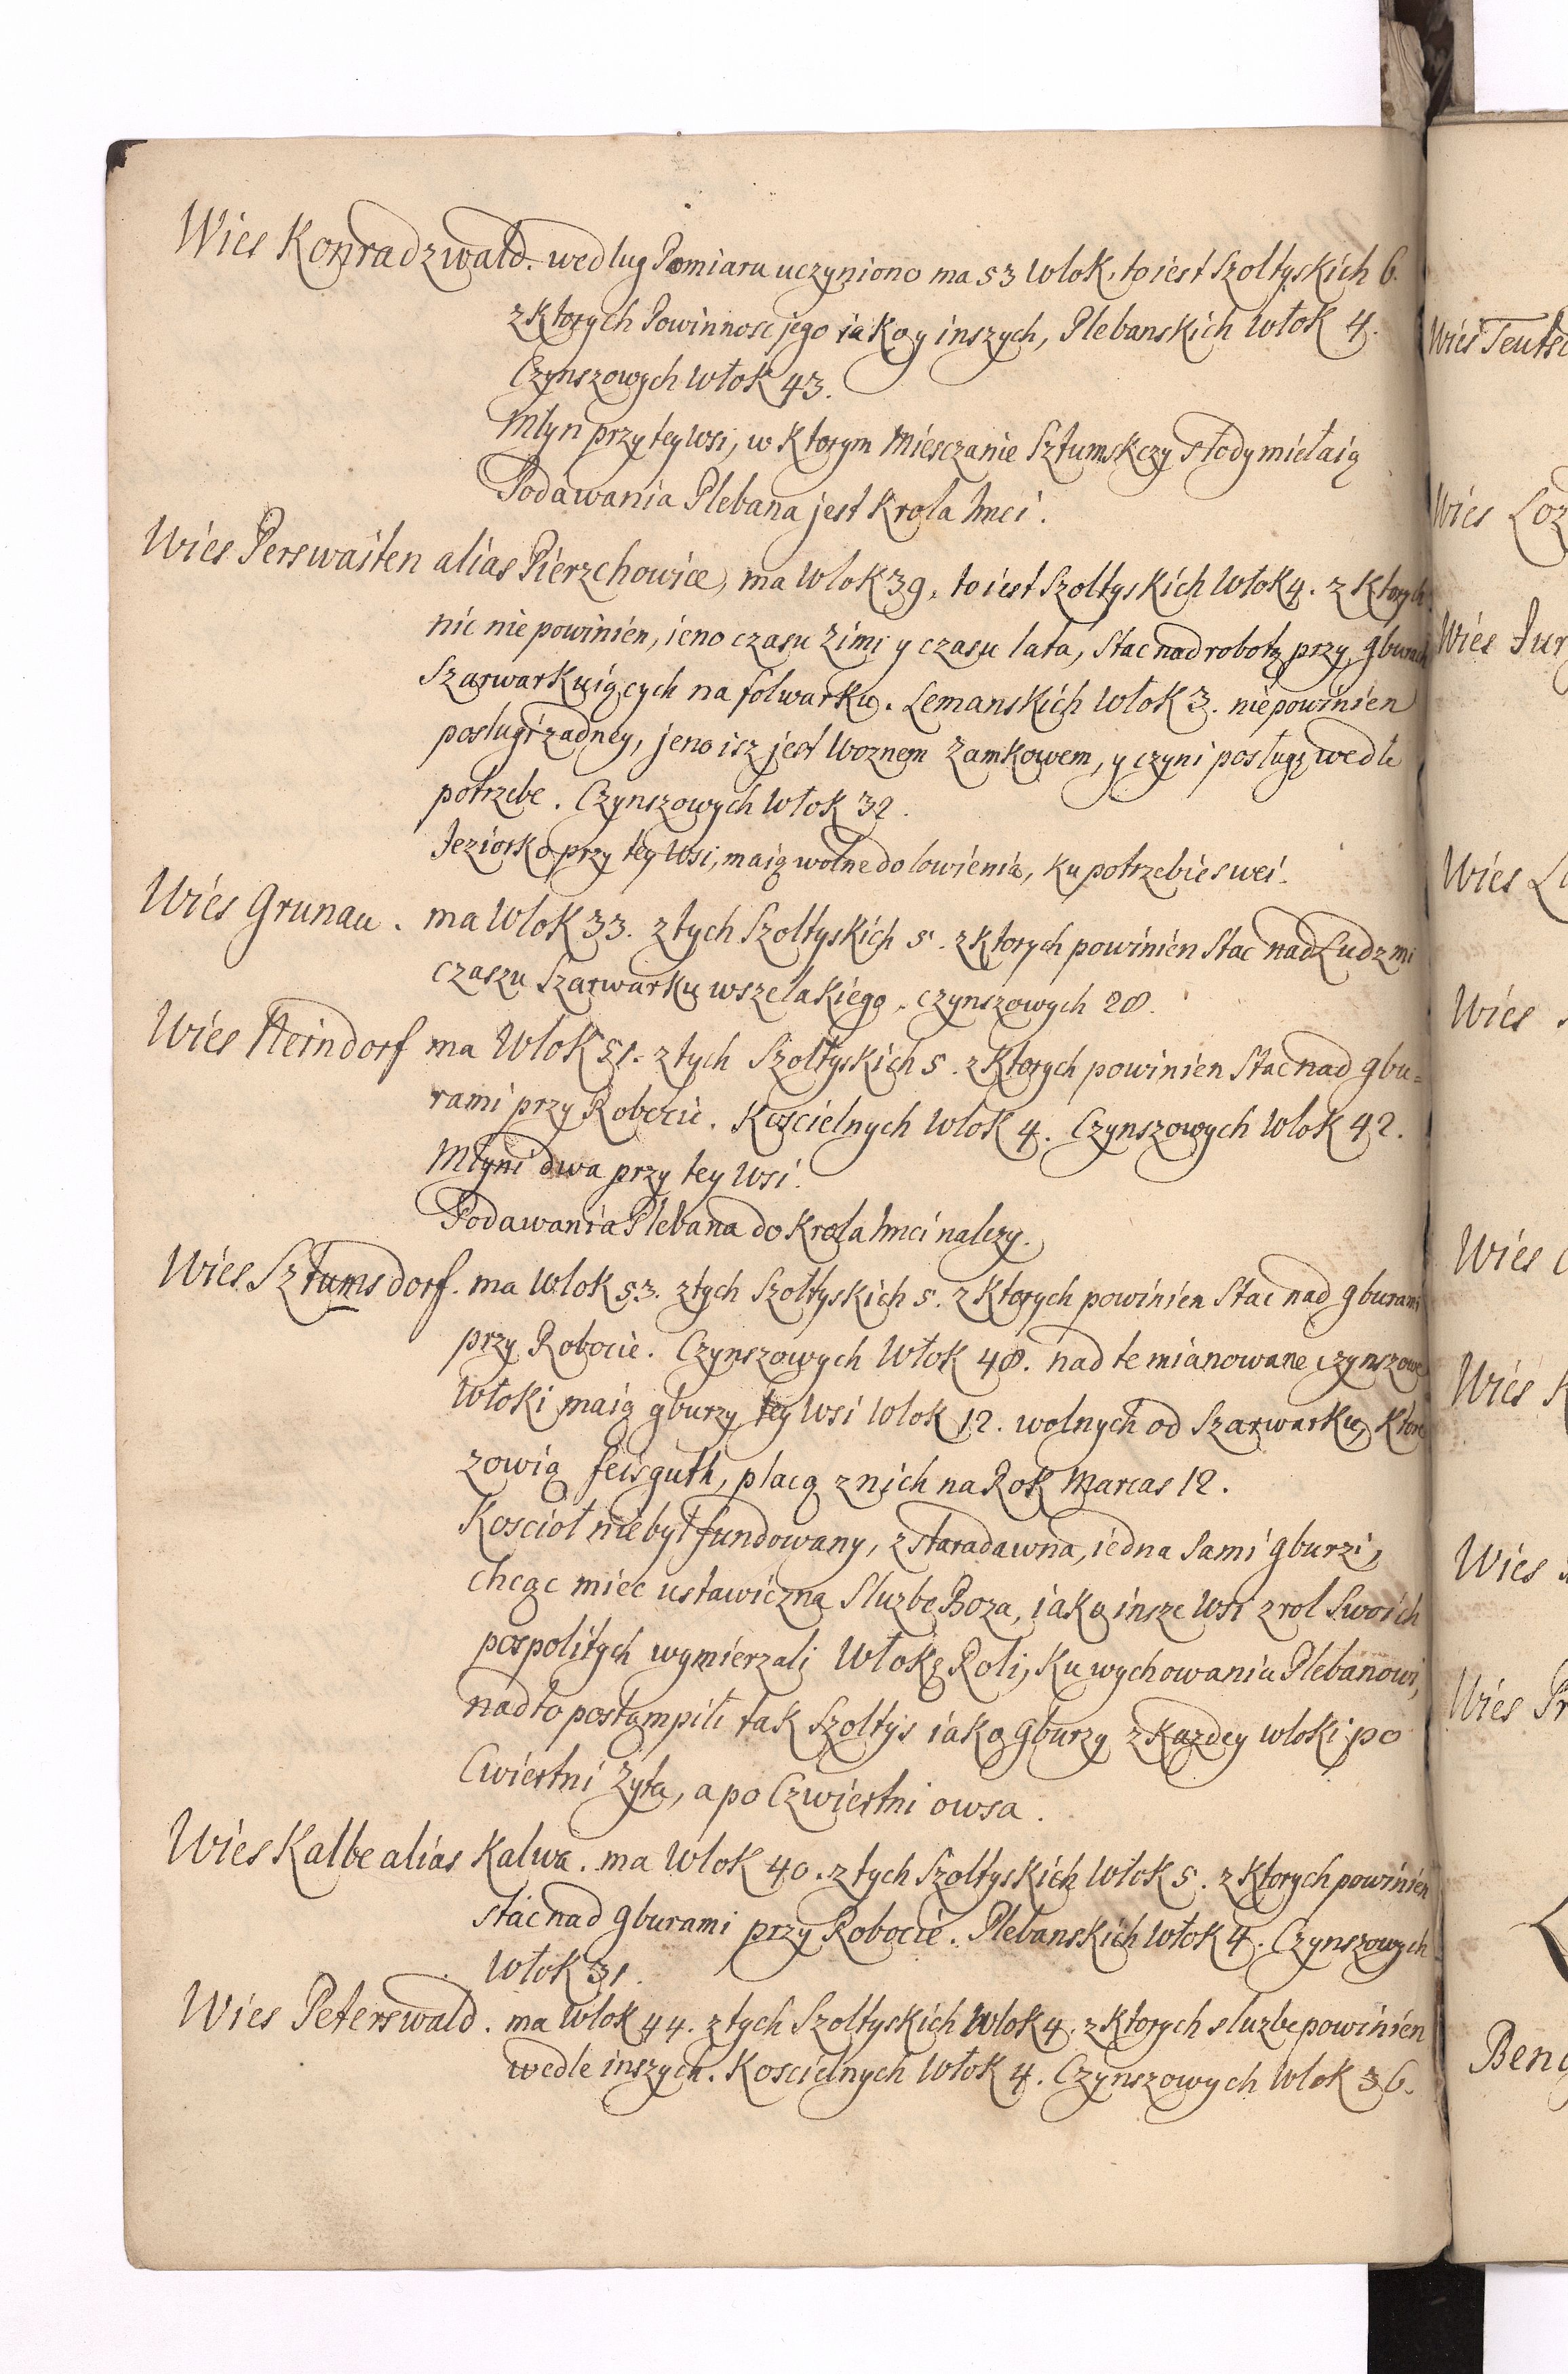 Wies Konradzwald. wedlug Pomiaru uczyniono ma 53 Wlok, to iest Szoltyskich 6.
z ktorych Powinnosc jego iako y inszych, Plebanskich Włok 4.
Czynszowych Włok 43.
Młyn przy tey Wsi, w ktorym Miesczanie Sztumskczy słody miełaią
Podawania Plebana jest Krola Jmci.
Wies Perswaiten alias Pierzchowice, ma Wlok 39, to iest Szoltyskich Włok 4. z ktorych
nic nie powinien, ieno czasu Zimi y czasu lata, Stac nad robotą przy gburach
Szarwarkuiących na folwarku. Lemanskich Włok 3. nie powinien
poslugi zadney, jeno isz jest Woznem Zamkowem, y czyni poslugę wedle
potrzebe. Czynszowych Włok 32.
Jeziorko przy tey Wsi, maią wolne do lowienia, ku potrzebie swei.
Wies Grunau. ma Wlok 33. z tych Szoltyskich 5. z ktorych powinien Stac nad Ludzmi
czaszu Szarwarku wszelakiego, czynszowych 28.
Wies Neindorf ma Wlok 51. z tych Szoltyskich 5. z ktorych powinien Stac nad gbu=
rami przy Robocie. Koscielnych Wlok 4. Czynszowych Wlok 42.
Młyni dwa przy tey Wsi.
Podawania Plebana do Krola Jmci nalezy.
Wies Sztumsdorf. ma Wlok 53. z tych Szoltyskich 5. z ktorych powinien Stac nad gburami
przy Robocie. Czynszowych Włok 48. nad te mianowane czynszowe
Włoki maią gburzy tey Wsi Wlok 12. wolnych od Szarwarku, ktore
zowią feisguth, placą z nich na Rok Marcas 12.
Koscioł nie był fundowany, z staradawna, iedna sami gburzi,
chcąc miec ustawiczną Sluzbę Boza, iako insze Wsi z rol Swoich
pospolitych wymierzali Włokę Roli, Ku wychowaniu Plebanowi,
nadto postąmpili tak Szoltys iako gburzy z Kazdey wloki po
Cwiertni Zyta, a po Czwiertni owsa.
Wies Kalbe alias Kalwa. ma Wlok 40. z tych Szoltyskich Włok 5. z ktorych powinien
stac nad gburami przy Robocie. Plebanskich Włok 4. Czynszowych
Włok 31.
Wies Peterswald. ma Wlok 44. z tych Szoltyskich Wlok 4. z ktorych sluzbe powinien
wedle inszych. Koscielnych Włok 4. Czynszowych Wlok 36.
Wies
Wies
Wies
Wies
Wies
Wies
Wies
Wies
Wies